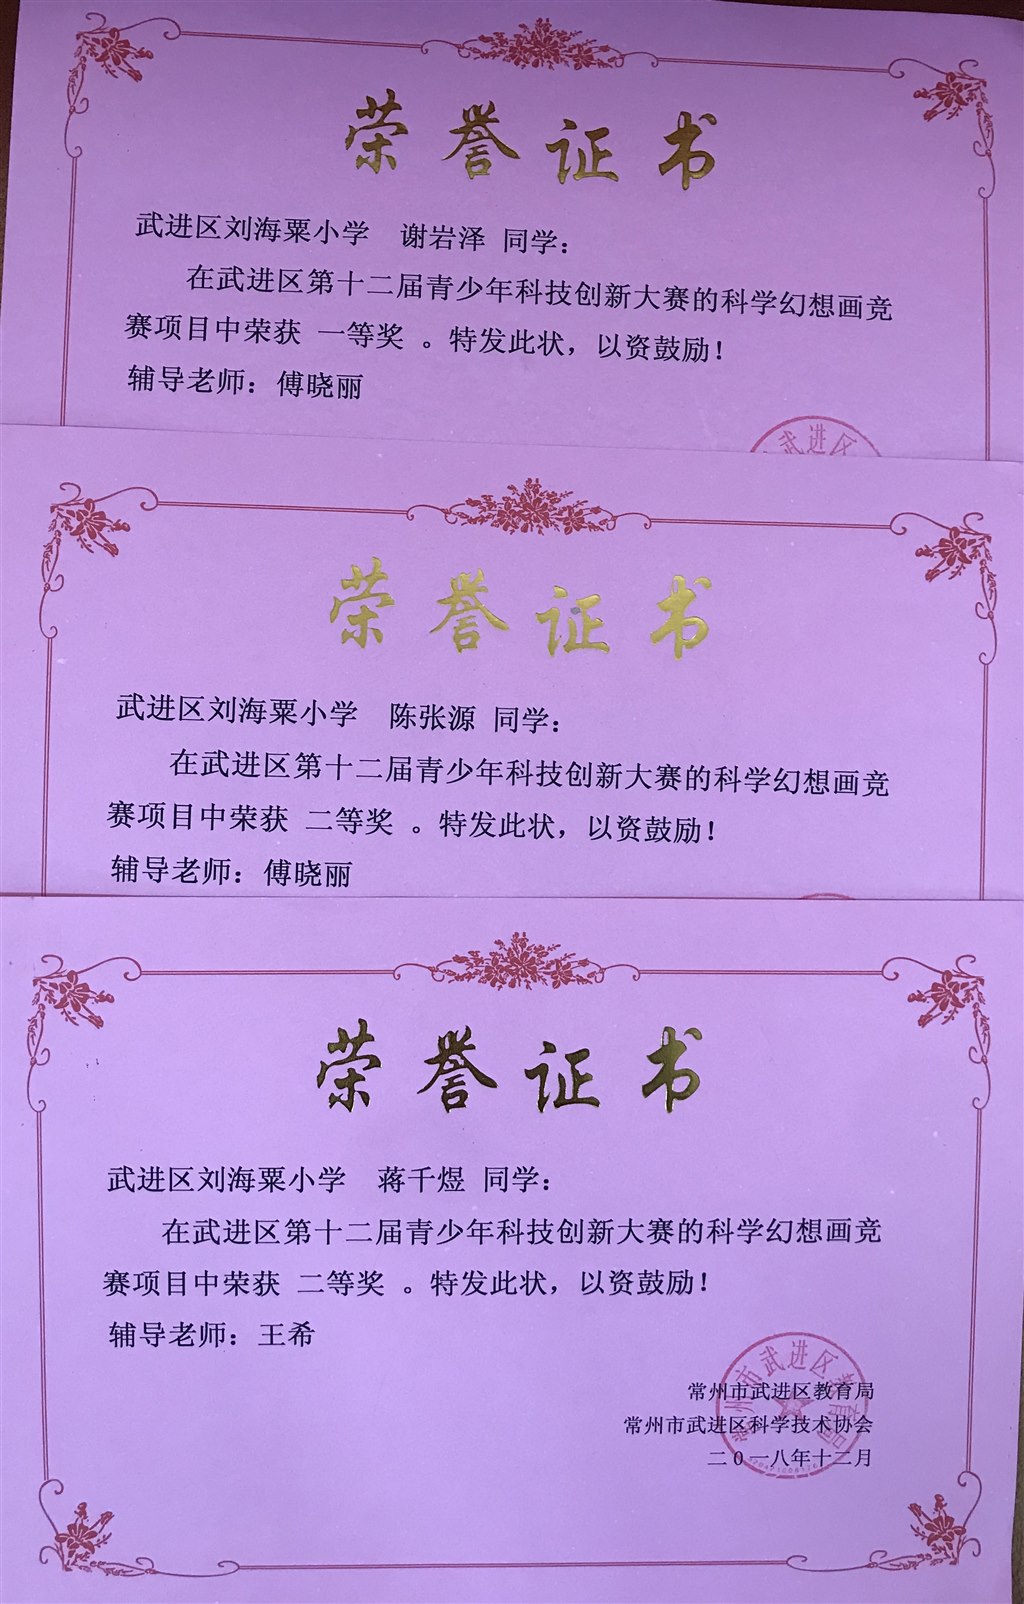 荣誉证书
武进区刘海粟小学 谢岩泽 同学：
在武进区第十二届青少年科技创新大赛的科学幻想画竞
赛项目中荣获 一等奖 。特发此状，以资鼓励！
辅导老师：傅晓丽
武进区
荣誉证书
武进区刘海粟小学 陈张源 同学：
在武进区第十二届青少年科技创新大赛的科学幻想画竞
赛项目中荣获 二等奖 。特发此状，以资鼓励！
辅导老师：傅晓丽
荣誉证书
武进区刘海粟小学 蒋千煜 同学：
在武进区第十二届青少年科技创新大赛的科学幻想画竞
赛项目中荣获 二等奖 。特发此状，以资鼓励！
辅导老师：王希
常州市武进区教育局
常州市武进区教育局
常州市武进区科学技术协会
二0一八年十二月